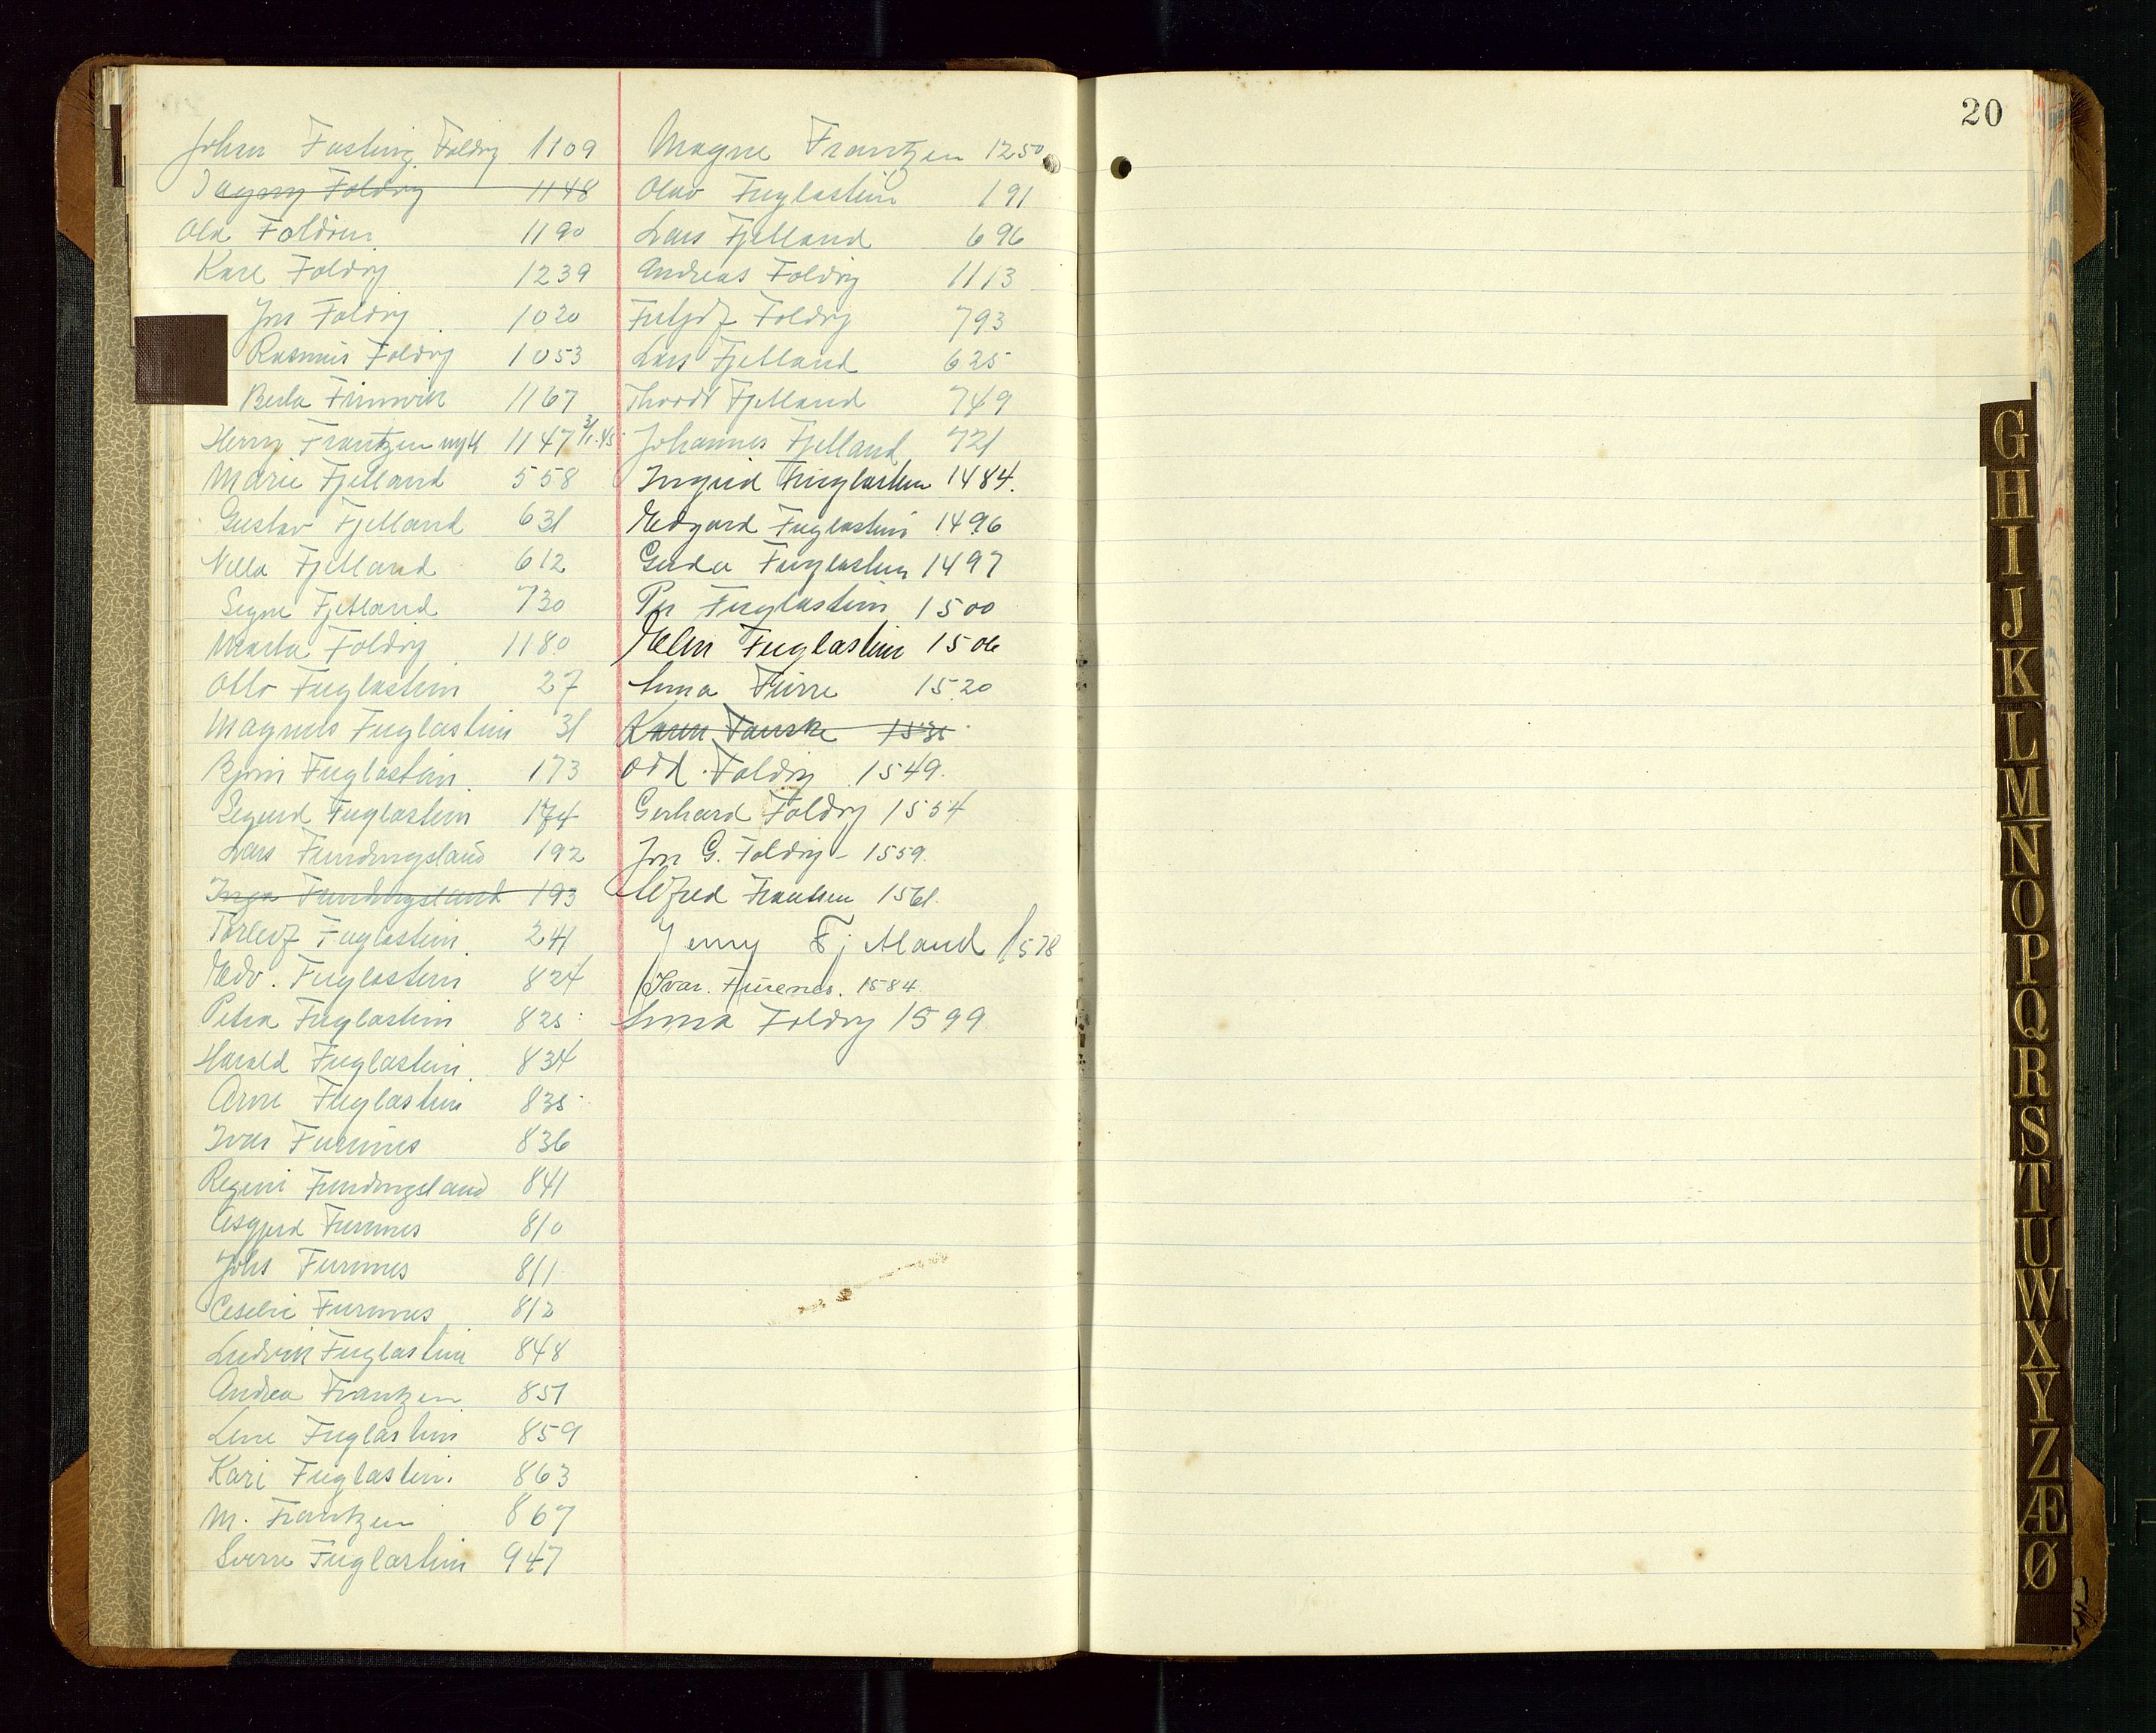 Johan Fasting Foldøy 1109
Dagny Foldøy 1148
Ola Foldøen 1190
Kare Foldøy 1239
Jon Foldøy 1020
Rasmus Foldøy 1053
Berta Finnvik 1167
Henry Frantzen nytt 1147 3/1.45
Marie Fjelland 558
Gustav Fjelland 631
Nella Fjelland 612
Signe Fjelland 730
Marta Foldøy 1180
Otto Fuglestein 27
Magnus Fuglestein 31
Bjørn Fuglestein 173
Sigurd Fuglestein 174
Lars Fundingsland 192
Inga Fundingsland 193
Torleif Fuglestein 241
Edv. Fuglestein 824
Petra Fuglestein 825
Harald Fuglestein 834
Arne Fuglestein 835
Ivar Furenes 836
Regine Fundingsland 841
Asgjerd Furenes 810
Johs Furenes 811
Furenes 812
Ludvik Fuglestein 848
Andrea Frantzen 851
Lene Fuglestein 859
Kari Fuglestein. 863
M. Frantzen 867
Sverre Fuglestein 947
Magne Frantzen 1250
Olav Fuglestein 191
Lars Fjelland 696
Andreas Foldøy 1113
Foldøy 793
Lars Fjelland 625
Thordt Fjelland 749
Johannes Fjelland 721
Ingrid Fuglestein 1484.
Edgard Fuglestein 1496
Gerda Fuglestein 1497
Per Fuglestein 1500
Elen Fuglestein 1506
Anna Furre 1520
Karen Fauske 1535
Odd Foldøy 1549.
Gerhard Foldøy 1554
Jon G. Foldøy - 1559.
Alfred Frantsen 1561.
Jenny Fjetland 1578
Ivar. Furenes. 1584.
Anna Foldøy 1599
20
G
H
I
J
K
L
M
N
O
P
Q
R
S
T
U
W
X
Y
Z
Æ
Ø